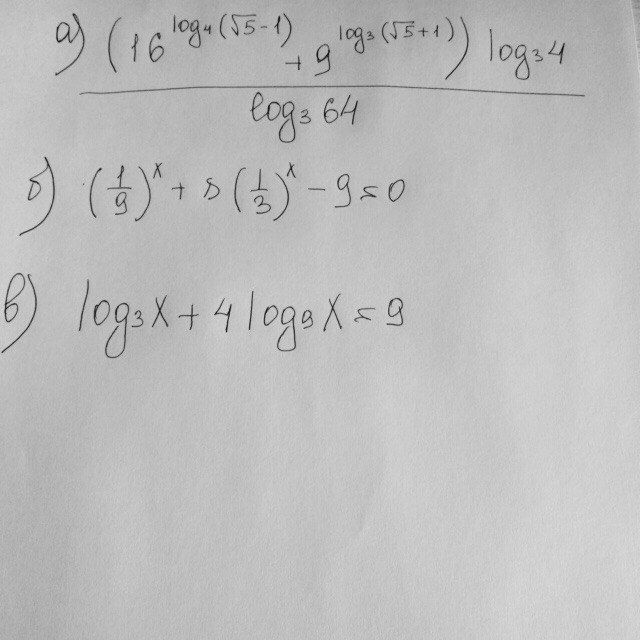 а) (16^{log₄(√5-1)} + 9^{log₃(√5+1)}) log₃4
log₃ 64
б) (1/9)^x + 8 (1/3)^x - 9 = 0
в) log₃x + 4 log₉x = 9